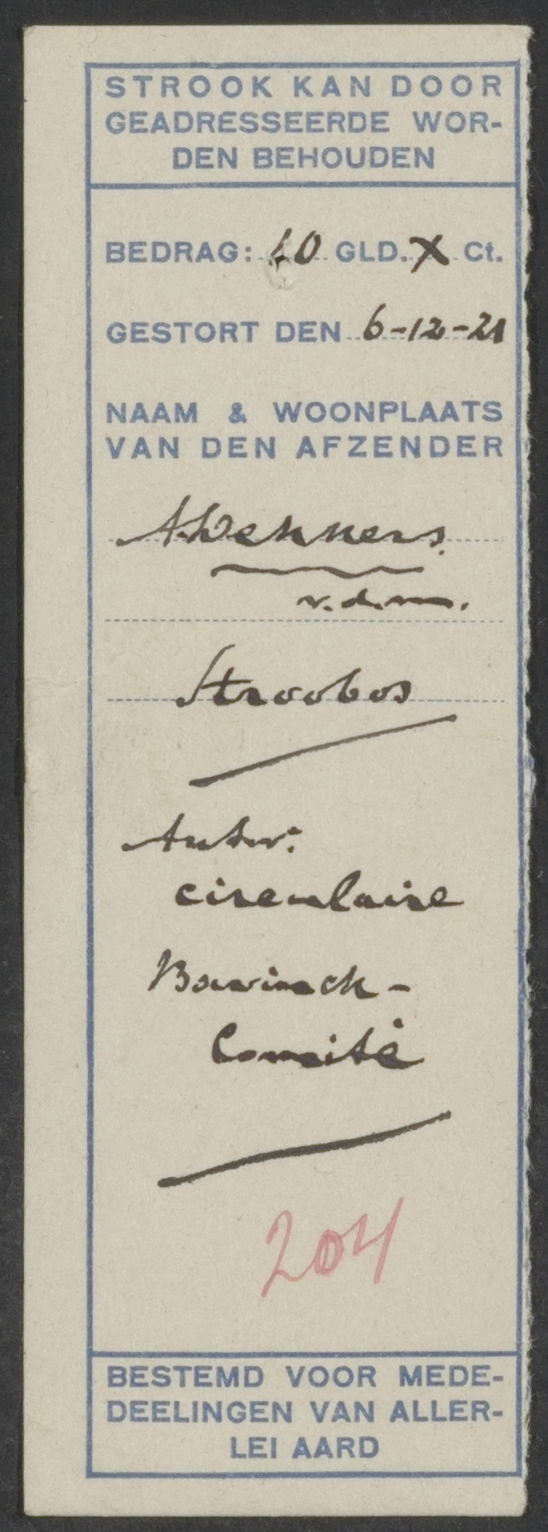 STROOK KAN DOOR
GEADRESSEERDE WOR-
DEN BEHOUDEN
BEDRAG: 10 GLD. X Ct.
GESTORT DEN 6-12-21
NAAM & WOONPLAATS
VAN DEN AFZENDER
v.d.m.
Stroobos
Antw:
circulaire
Bavinck-
Comité
204
BESTEMD VOOR MEDE-
DEELINGEN VAN ALLER-
LEI AARD